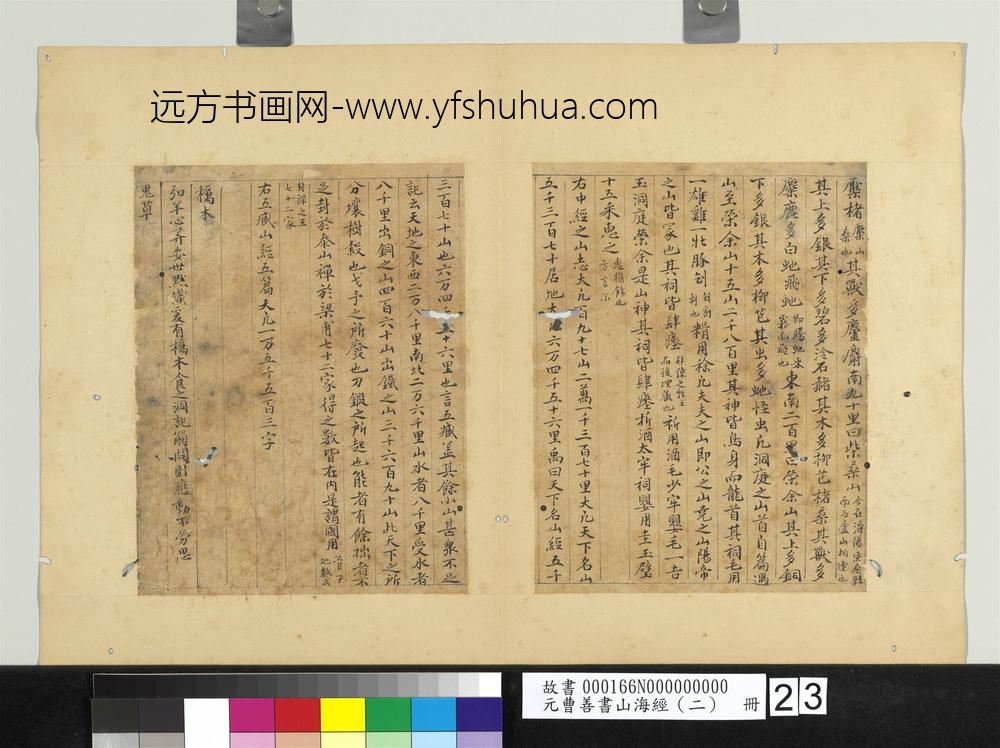 远方书画网-www.yfshuhua.com
麋楮
其獸多麈麢南九十里曰柴桑山
其上多銀其下多碧多泠石赭其木多柳芑楮桑其獸多
麋鹿多白虵飛虵
東南二百里曰榮余山其上多銅
下多銀其木多柳芑其虫多虵怪虫凡洞庭之山首自篇遇
山至榮余山十五山二千八百里其神皆鳥身而龍首其祠毛用
一雄雞一牡豚刉
精用稌凡夫夫之山即公之山堯之山陽帝
之山皆冢也其祠皆肆瘞
祈用酒毛少牢嬰毛一吉
玉洞庭榮余是山神其祠皆肆瘞祈酒太牢祠嬰用圭玉璧
十五采惠之
惠猶飾也
方言尔
右中經之山志大凡百九十七山二萬一千三百七十里大凡天下名山
五千三百七十居地大 六万四千五十六里禹曰天下名山經五千
三百七十山也六万四 十六里也言五臧盖其餘小山甚衆不足
記云天地之東西二万八千里南北二万六千里山水者八千里受水者
八千里出銅之山四百六十山出鐵之山三千六百九十山此天下之所
分壤樹穀也戈予之所發也刀鎩之所起也能者有餘拙者不
足封於泰山禪於梁甫七十二家得之數皆在内是謂國用
管子
地數云
封禪之王
七十二家
右五臧山經五篇大凡一万五千五百三字
櫔木
爰有櫔木食之洞
動不勞思
鬼草
故書 000166N000000000
元曹善書山海經（二） 冊
23